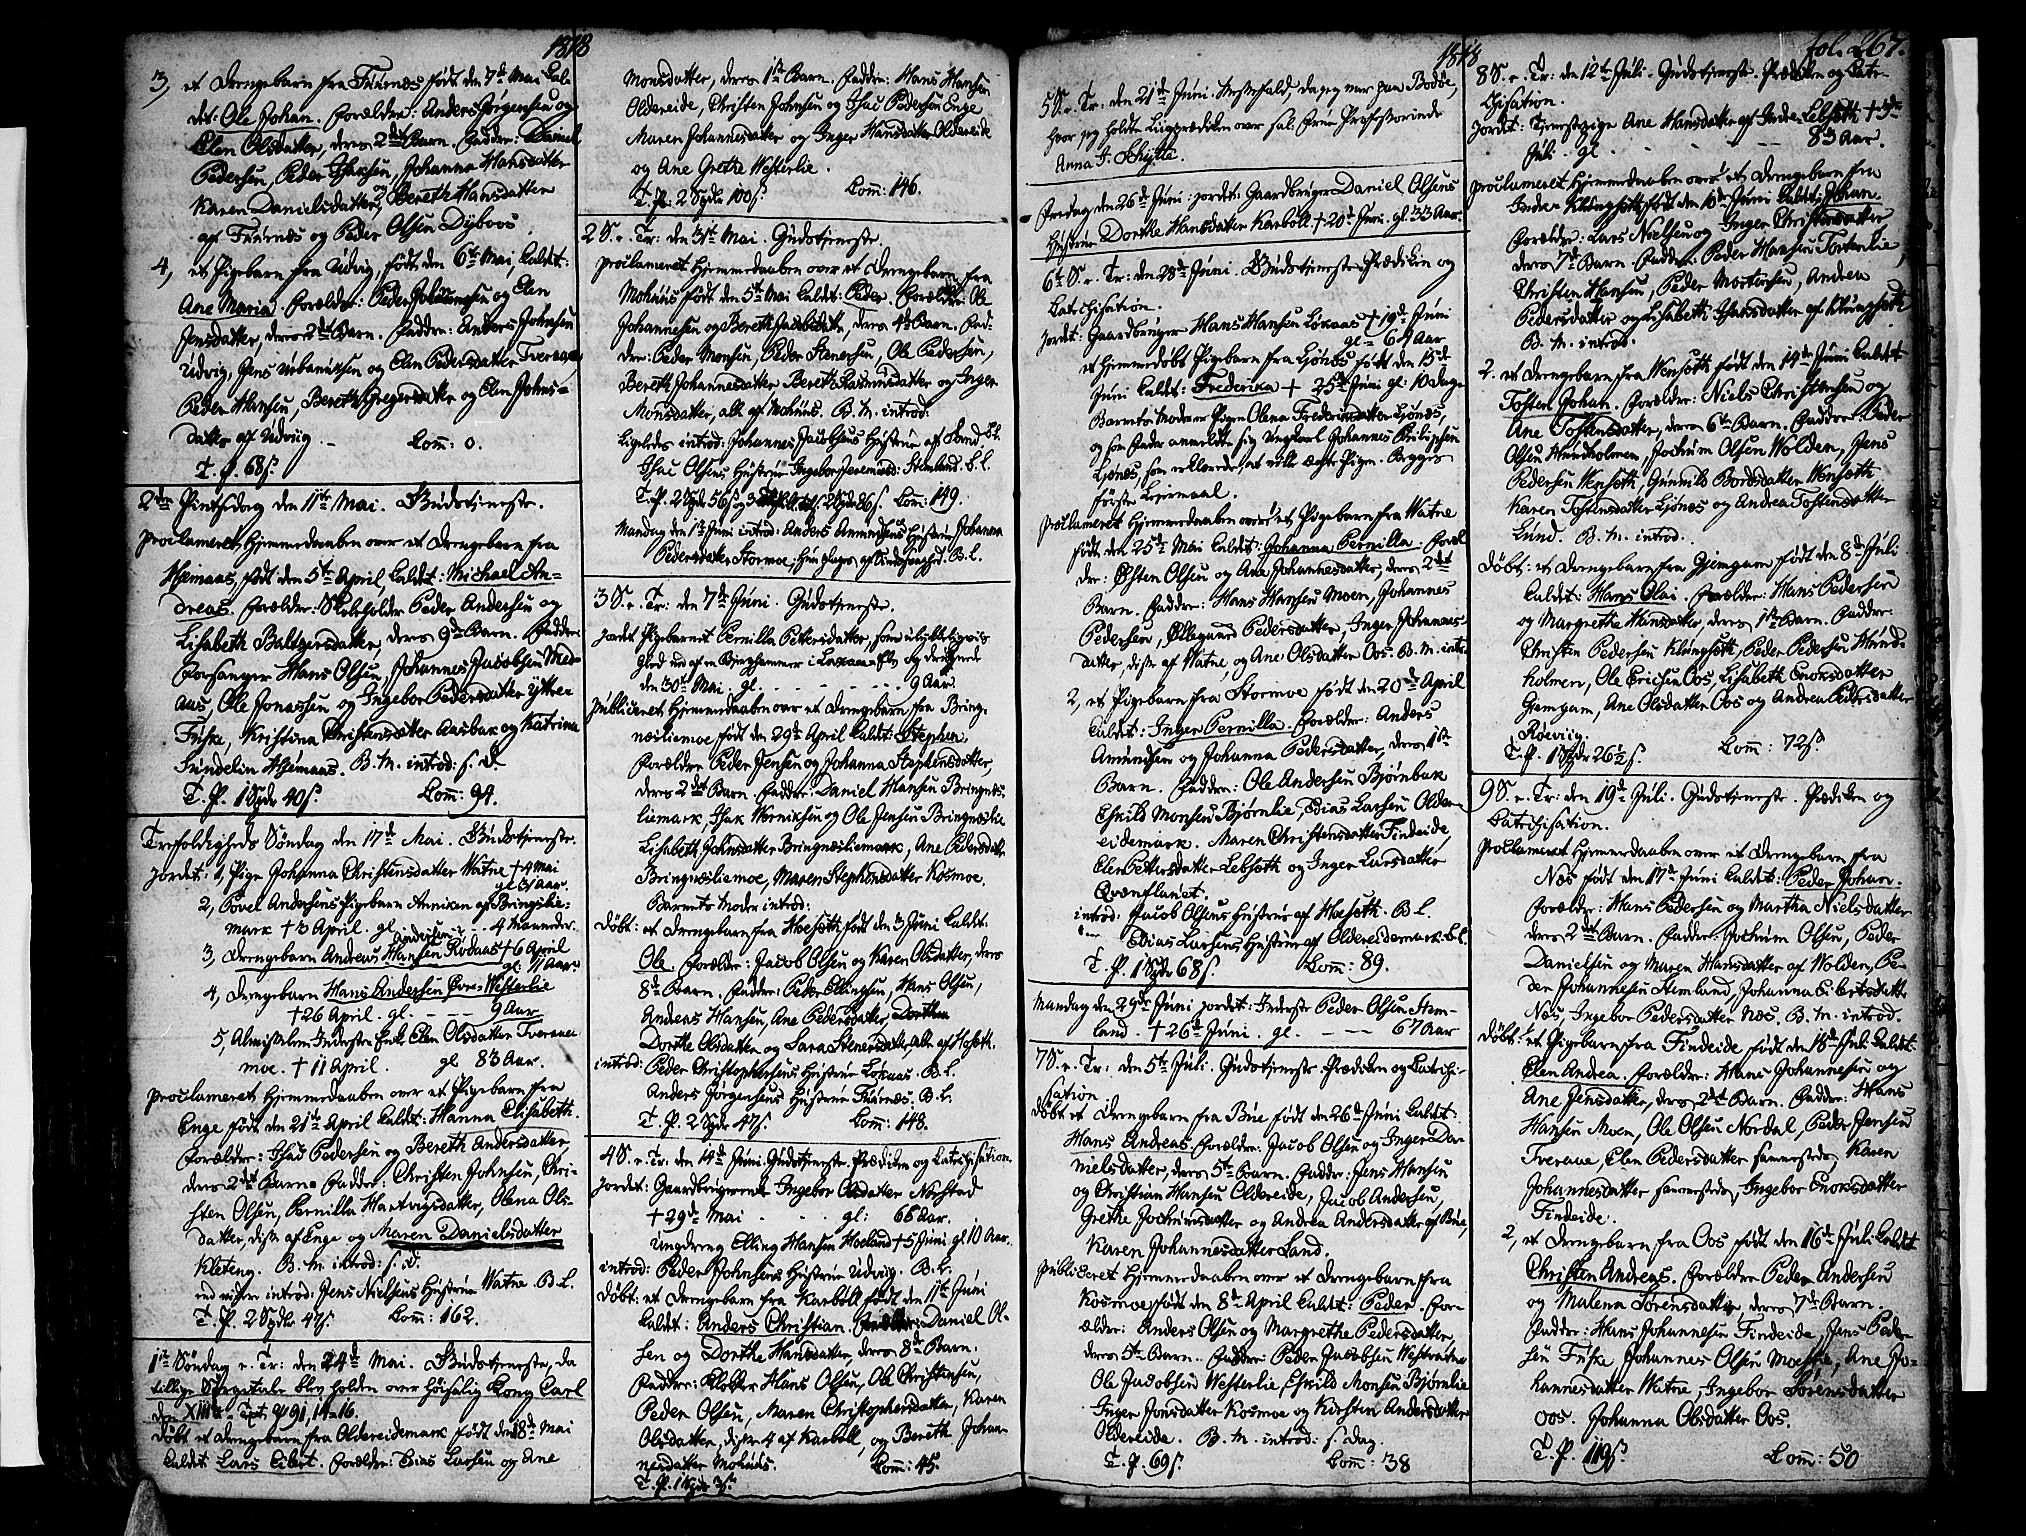 1818
3, et Drengebarn fra Fuurnæs født den 7de Mai kal-
det: Ole Johan. Forældre: Anders Jørgensen og
Elen Olsdatter, deres 2det Barn. Faddre: Daniel
Pedersen, Peder Isaksen, Johanna Hansdatter
Karen Danielsdatter, og Bereth Hansdatter
af Fuurnæs og Peder Olsen Dybvos.
4, et Pigebarn fra Udvig, født den 6te Mai, kaldet:
Ane Maria. Forældre: Peder Johansen og Elen
Jensdatter, deres 2det Barn. Faddre: Anders Johnsen
Udvig, Jens Urbanussen og Elen Pedersdatter Tveraae,
Peder Hansen, Bereth Gregersdatter og Elen Johns-
datter af Udvig. Com: 0.
T. P. 68 s.
2den Pintsedag den 11te Mai. Gudstjeneste.
Proclameret Hjemmedaaben over et Drengebarn fra
Hjemaas, født den 5te April, kaldet: Michael An-
dreas. Forældre: Skoleholder Peder Andersen og
Lisabeth Baltzersdatter, deres 9de Barn. Faddre:
Forsanger Hans Olsen, Johannes Jacobsen Med-
aas, Ole Jonassen og Ingebor Pedersdatter yttre-
aas, Fuske, Kristina Christensdatter Aasbak og Katrina
Fundelin Hjemaas. B. M. introd: s. D.
T. P. 1 Spdr 40 s. Com: 94.
Trefoldigheds Søndag den 17de Mai. Gudstjeneste.
Jordet: 1, Pige Johanna Christensdatter Watne + 4 Mai
gl 31 Aar.
2, Povel Andersens Pigebarn Anniken af Bringslie-
mark + 3 April. gl 4 Maaneder.
3, Drengebarn Andreas Hansen Andersen Rødaas + 6 April
gl: 11 Aar.
4, Drengebarn Hans Andersen Øvre-Westerlie
+ 26 April. gl. 9 Aar
5, Almisselem Inderste Enke Elen Olsdatter Tveraae
moe. + 11 April. gl 83 Aar.
Proclameret Hjemmedaaben over et Pigebarn fra
Enge født den 21de April kaldet: Hanna Elisabeth.
Forældre: Isac Pedersen og Bereth Andersdatter,
deres 2det Barn. Faddre: Christen Johnsen, Chri-
sten Olsen, Pernilla Hartvigsdatter, Olena Ols-
datter, disse af Enge og Maren Danielsdatter
Kleteng. B. M. introd: s. D.
ind videre introd: Jens Nielsens Hustrue Watne. B. L.
T. P. 2 Spdr 47 s. Com: 162.
1ste Søndag e. Tr: den 24de Mai. Gudstjeneste, da
tillige Sørgetale blev holden over Høisalig Kong Carl
den XIIIde. Text. ψ 91, 14-16.
Døbt et Drengebarn fra Oldereidemark født den 8de Mai
kaldet Lars Eibert. Forældre: Tobias Larsen og Ane
Monsdatter, deres 1ste Barn. Faddre: Hans Hansen
Oldereide, Christen Johnsen og Isac Pedersen Enge
Maren Johannesdatter og Inger Hansdatter Oldereide
og Ane Grethe Westerlie.
T. P. 2 Spdr 100 s. Com: 146.
2 S. e. Tr: den 31te Mai. Gudstjeneste.
Proclameret Hjemmedaaben over et Drengebarn fra
Mohuus født den 5te Mai kaldet: Peder. Forældre: Ole
Johannesen og Bereth Jacobsdatter, deres 4de Barn. Fad-
dre: Peder Monsen, Peder Stenersen, Ole Pedersen,
Bereth Johannesdatter Bereth Rasmusdatter og Inger
Monsdatter, alle af Mohuus. B. M. introd:
Ligeledes introd: Johannes Jacobsens Hustrue af Sund B. L.
Isac Olsens Hustrue Ingebor Jeremiasd: Stemland. B. L.
T. P. 2 Spdr 56 s. Com: 149.
Mandag den 1ste Juni introd: Anders Amundsens Hustrue Johanna
Pedersdatter Stormoe, B. L.
3 S. e. Tr: den 7de Juni. Gudstjeneste.
Jordet Pigebarnet Pernilla Pettersdatter, som ulykkeligviis
gled ud af en Bjerghammer i Laxaae Elv og druknede
den 30te Mai. gl. 9 Aar
Publiceret Hjemmedaaben over et Drengebarn fra Bring-
næsliemoe født den 29de April kaldet: Stephen.
Forældre Peder Jensen og Johanna Stephensdatter,
deres 2det Barn. Faddre: Daniel Hansen Bringnæs-
liemark, Isak Werniksen og Ole Jensen Bringnæslie
Lisabeth Johnsdatter Bringnæsliemark, Ane Pedersdatter
Bringnæsliemoe, Maren Stephensdatter Kosmoe.
Barnets Moder introd:
Døbt: et Drengebarn fra Hoeseth født den 3 Juni kaldet:
Ole Forældre: Jacob Olsen og Karen Olsdatter, deres
8de Barn. Faddre: Peder Ellingsen, Hans Olsen,
Andreas Hansen, Ane Pedersdatter, Dorthea
Dorthe Olsdatter og Sara Stenersdatter, alle af Hoseth.
introd: Peder Christophersens Hustrue Løkaas. B. L.
Anders Jørgensens Hustrue Fuurnæs. B. L.
T. P. 2 Spdr 47 s. Com: 148.
4 S. e. Tr: den 14de Juni. Gudstjeneste. Prædiken og Catechisation.
Jordet: Gaardbrugerenke Ingebor Olsdatter Nestad
+ 29de Mai gl: 66 Aar.
Ungdreng Elling Hansen Hoeland + 5 Juni gl 10 Aar.
introd: Peder Johnsens Hustrue Udvig. B. L.
Døbt: et Drengebarn fra Karbøll født den 11te Juni
kaldet: Anders Christian. Forældre: Daniel Ol-
sen og Dorthe Hansdatter, deres 8de Barn.
Faddre: Klokker Hans Olsen, Ole Christensen,
Peder Olsen, Maren Christophersdatter, Karen
Olsdatter, disse 4 af Karbøll, og Bereth Johan-
nesdatter Mohuus. Com: 45.
T. P. 1 Spdr 3 s.
1818 fol. 267.
5 S. e. Tr: den 21de Juni. Messefald, da jeg var paa Bodøe,
hvor jeg holdte Ligprædiken over sal. Frue Professorinde
Anna J. Schytte.
Fredag den 26de Juni: jordet: Gaardbruger Daniel Olsens
Hustrue Dorthe Hansdatter Karbøll + 20de Juni. gl. 33 Aar.
6te S. e. Tr: den 28de Juni. Gudstjeneste. Prædiken og
Catechisation.
Jordet: Gaardbruger Hans Hansen Løkaas + 19de Juni
gl = 69 Aar
et hjemmedøbt Pigebarn fra Ljønæs født den 15de
Juni kaldet: Frederica + 25de Juni gl: 10 Dage.
Barnets Moder Pigen Olena Fredericsdatter Ljønæs,
og som Fader anmeldte sig Ungkarl Johannes Philipsen
Ljønæs, som erklærede, at ville ægte Pigen. Begges
første Leiermaal.
Proclameret Hjemmedaaben over et Pigebarn fra Watne
født den 25de Mai kaldet: Johanna Pernilla. Foræl-
dre: Østen Olsen og Ane Johannesdatter, deres 2det
Barn. Faddre: Hans Hansen Moen, Johannes
Pedersen, Ollegaard Pedersdatter, Inger Johannes-
datter, disse af Watne, og Ane Olsdatter Oos. B. M. intr.
2, et Pigebarn fra Stormoe født den 20de April
kaldet: Inger Pernilla. Forældre: Anders
Amundsen og Johanna Pedersdatter, deres 1ste
Barn. Faddre: Ole Andersen Bjørnbak
Eskild Monsen Bjørnlie, Tobias Larsen Older-
eidemark. Maren Christensdatter Findeide,
Elen Pettersdatter Lebseth og Inger Larsdatter
Qvænflaaet.
introd: Jacob Olsens Hustrue af Hoeseth. B. L.
Tobias Larsens Hustrue af Oldereidemark. B. L.
T. P. 1 Spdr 68 s. Com: 89.
Mandag den 29de Juni jordet: Inderste Peder Olsen Stem-
land. + 26de Juni. gl. 67 Aar
7 S. e. Tr: den 5te Juli. Gudstjeneste. Prædiken og Catechi-
sation
Døbt et Drengebarn fra Bue født den 26de Juni kaldet:
Hans Andreas. Forældre: Jacob Olsen og Inger Da-
nielsdatter, deres 5te Barn. Faddre: Jens Hansen
og Christian Hansen Oldereide, Jacob Andersen,
Grethe Jochumsdatter og Andrea Andersdatter af Bue,
Karen Johannesdatter Land.
Publiceret Hjemmedaaben over et Drengebarn fra
Kosmoe, født den 8de April kaldet: Peder. For-
ældre: Anders Olsen og Margrethe Pedersdatter,
deres 5te Barn. Faddre: Peder Jacobsen Westvatne
Ole Jacobsen Westerlie, Eskild Monsen Bjørnlie
Inger Jonsdatter Kosmoe og Kirsten Andersdatter
Oldereide. B. M. introd: s. dag.
T. P. 69 s. Com: 38
8 S. e. Tr. den 12te Juli. Gudstjeneste. Prædiken og Cate-
chisation.
Jordet: Tjenestepige Ane Hansdatter af Indre Lebseth + 3de
Juli. gl 83 Aar.
Proclameret Hjemmedaaben over et Drengebarn fra
Indre Klungseth født den 16de Juni kaldet: Johan.
Forældre: Lars Nielsen og Inger Christensdatter
deres 7de Barn. Faddre: Peder Hansen Tortenlie,
Christen Hansen, Peder Mortensen, Andrea
Pedersdatter og Lisabeth Isaksdatter af Klungseth
B. M. introd.
2. et Drengebarn fra Wenseth født den 19de Juni kaldet
Tosten Johan. Forældre: Niels Christensen og
Ane Tostensdatter, deres 6te Barn. Faddre: Peder
Olsen Hundholmen, Jochum Olsen Wolden, Jens
Pedersen Wenseth, Gunnild Bordsdatter Wenseth
Karen Tostensdatter Ljønes og Andrea Tostensdatter
Lund. B. M. introd.
Døbt: et Drengebarn fra Gjemgam født den 8de Juli
kaldet: Hans Olai. Forældre: Hans Pedersen
og Margrethe Hansdatter, deres 1ste Barn. Faddre:
Christen Pedersen Klungseth, Peder Pedersen Hund-
holmen, Ole Ericsen Oos, Lisabeth Enoksdatter
Gemgam, Ane Olsdatter Oos og Andrea Pedersdatter
Røeviig.
T. P. 1 Spdr 26½ s. Com: 72 s.
9 S. e. Tr: den 19de Juli. Gudstjeneste. Prædiken og
Catechisation.
Proclameret Hjemmedaaben over et Drengebarn fra
Næs født den 17de Juni kaldet: Peder Johan.
Forældre: Hans Pedersen og Martha Nielsdatter
deres 2det Barn. Faddre: Jochum Olsen, Peder
Danielsen og Maren Hansdatter af Wolden, Pe-
der Johannesen Stemland, Johanna Eibertsdatter
Næs, Ingebor Pedersdatter Næs. B. M. introd.
Døbt: et Pigebarn fra Findeide født den 18de Juli kaldet:
Elen Andrea. Forældre: Hans Johannesen og
Ane Jensdatter, deres 2det Barn. Faddre: Hans
Hansen Moen, Ole Olsen Nordal, Peder Jensen
Tveraae, Elen Pedersdatter sammesteds, Karen
Johannesdatter sammesteds, Ingebor Enoksdatter
Findeide.
2, et Drengebarn fra Oos født den 16de Juli kaldet
Christen Andreas. Forældre Peder Andersen
og Malena Sørensdatter, deres 7de Barn.
Faddre: Hans Johannesen Findeide, Jens Peder-
sen Fuske Johannes Olsen Moeshe, Ane Jo-
hannesdatter Watne, Ingebor Sørensdatter
Oos. Johanna Olsdatter Oos.
T. P. 119 s. Com: 50